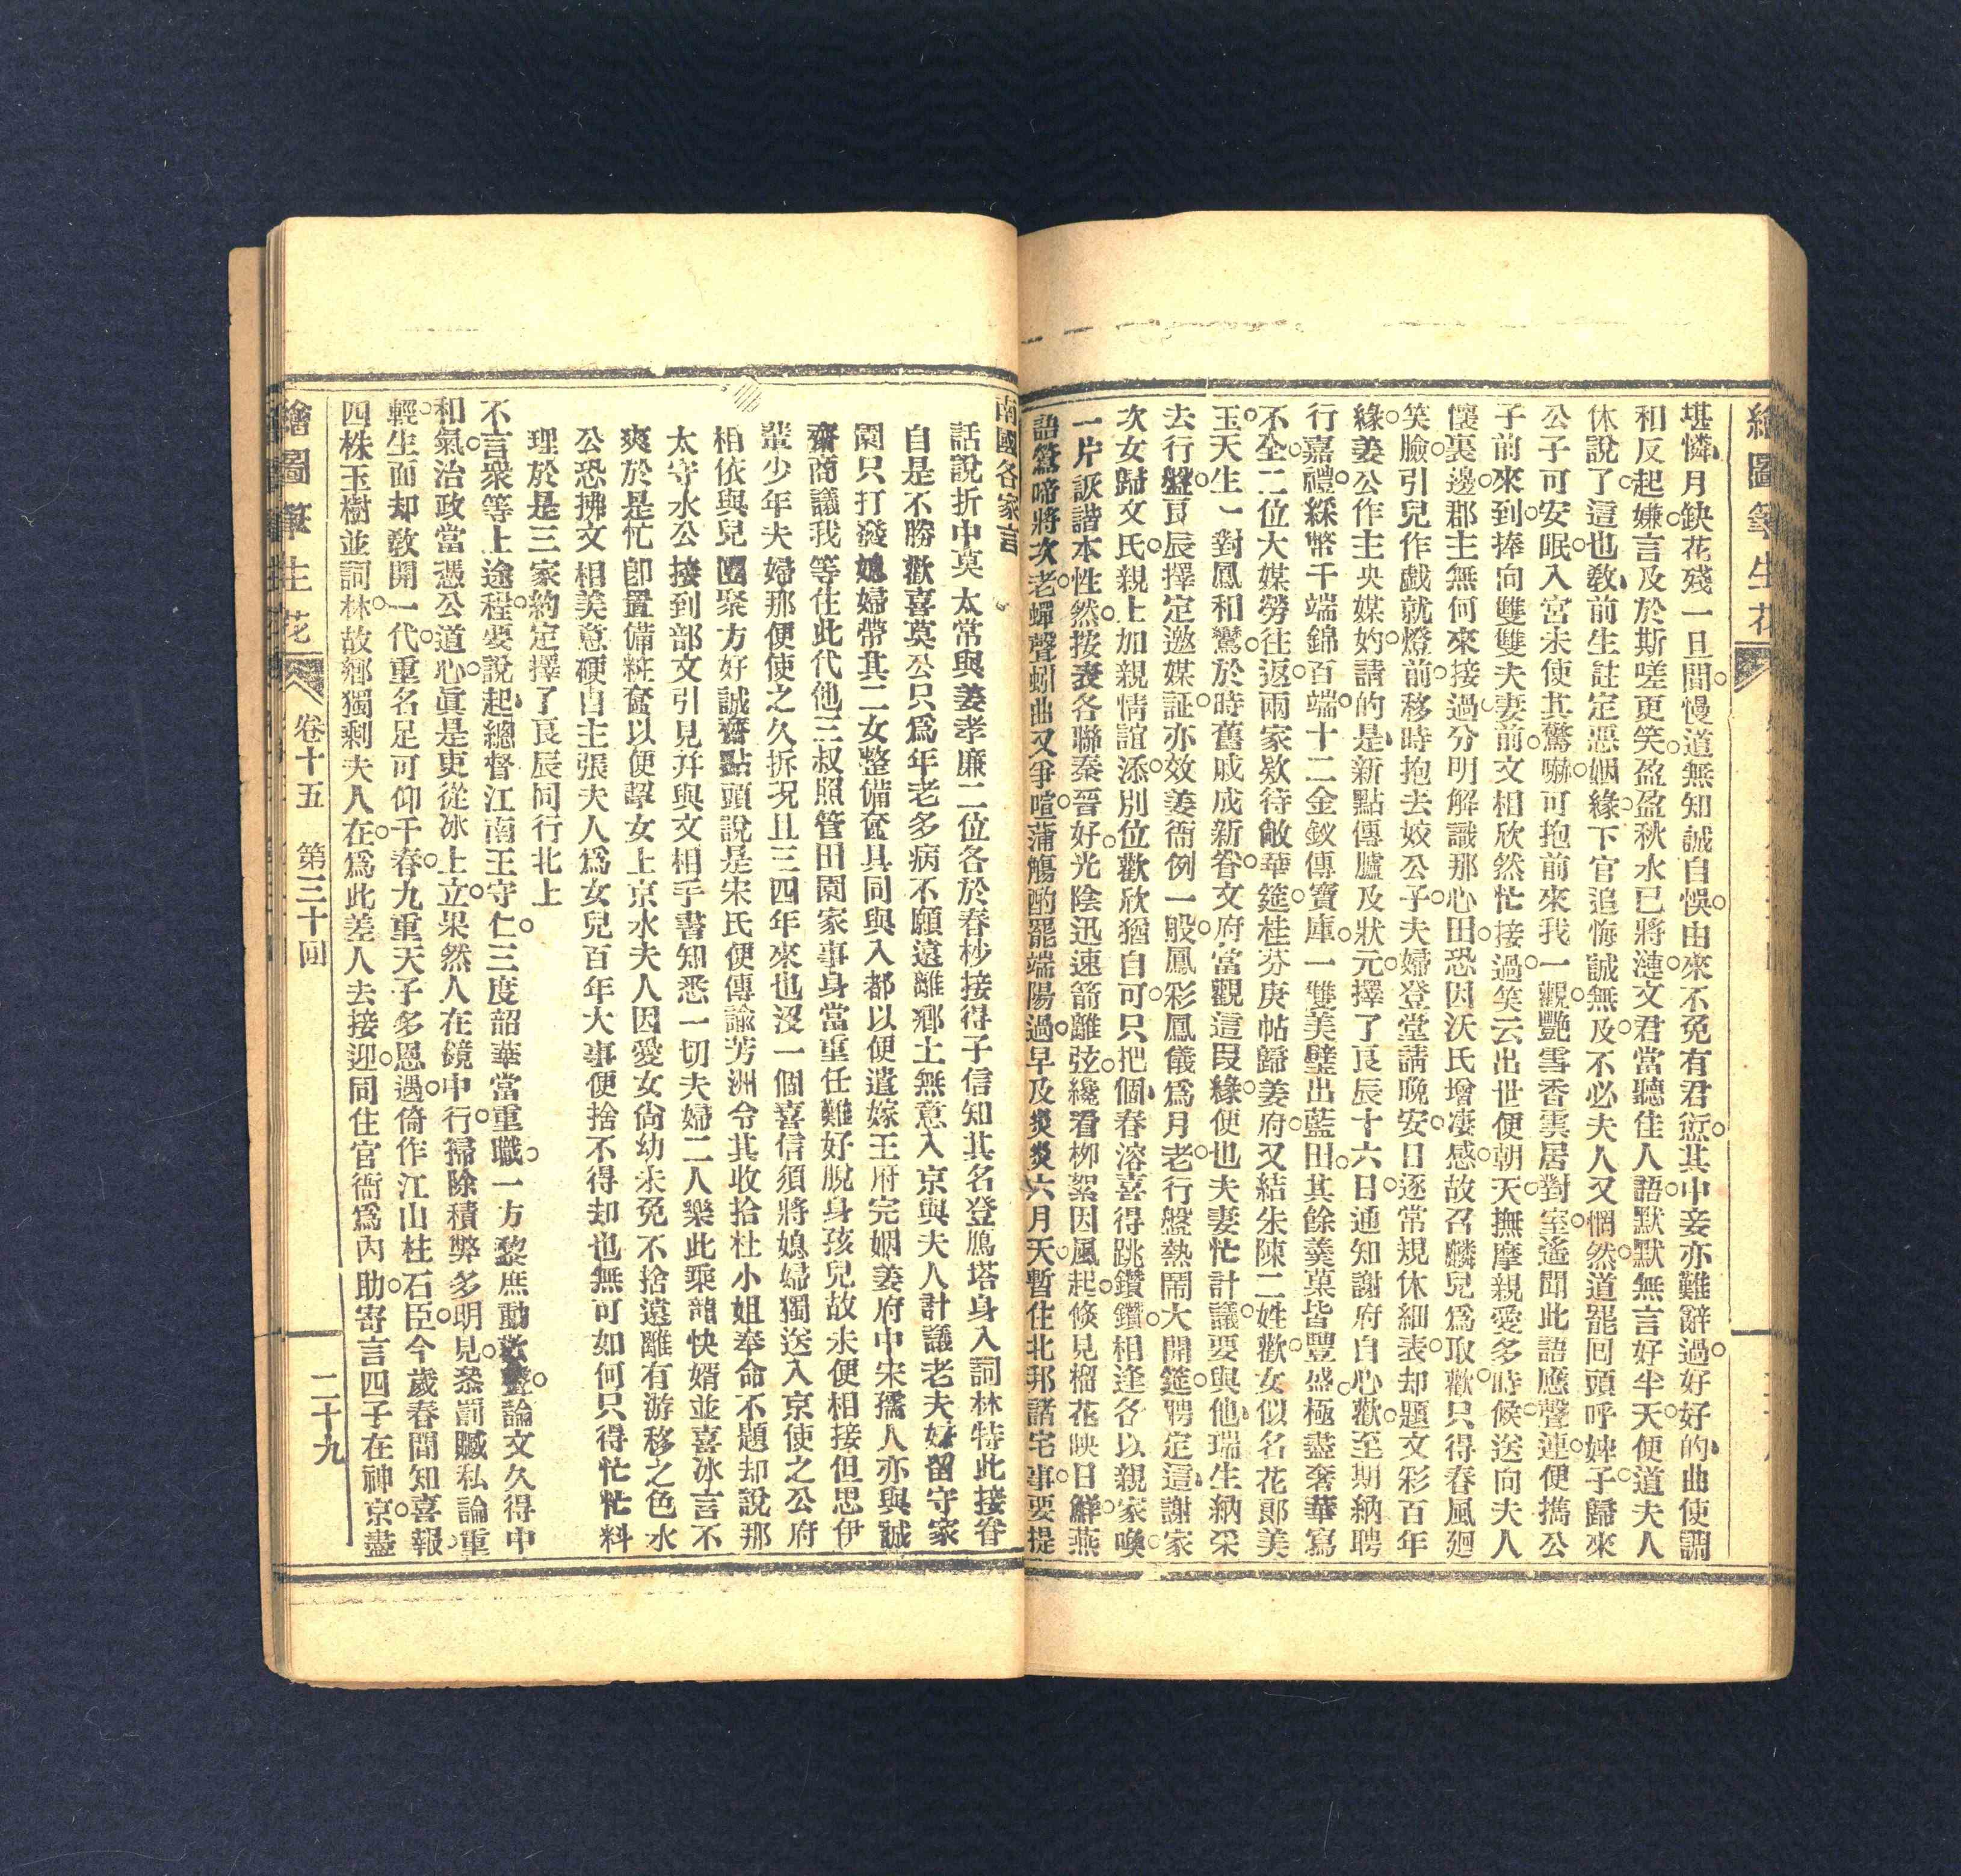 繪圖筆生花
堪憐月缺花殘一旦間慢道無知誠自悞由來不免有君愆其中妾亦難辭過好好的曲使調
和反起嫌言及於斯嗟更笑盈盈秋水已將漣文君當聽佳人語默默無言好半天便道夫人
休說了這也教前生註定惡姻緣下官追悔誠無及不必夫人又惘然道罷回頭呼婢子歸來
公子可安眠入宮未使其驚嚇可抱前來我一觀艷雪香雲居對室遙聞此語應聲連便攜公
子前來到捧向雙雙夫妻前文相欣然忙接過笑云出世便朝天撫摩親愛多時候送向夫人
懷裏邊郡主無何來接過分明解識那心田恐因沃氏增凄感故召麟兒爲取歡只得春風廻
笑臉引兒作戲就燈前移時抱去姣公子夫婦登堂請晚安日逐常規休細表却題文彩百年
緣姜公作主央媒妁請的是新點傳臚及狀元擇了良辰十六日通知謝府自心歡至期納聘
行嘉禮綵幣千端錦百端十二金釵傳寶庫一雙美璧出藍田其餘羹菓皆豐盛極盡奢華寫
不全二位大媒勞往返兩家欵待敞華筵桂芬庚帖歸姜府又結朱陳二姓歡女似名花郎美
玉天生一對鳳和鸞於時舊戚成新眷文府當觀這叚緣便也夫妻忙計議要與他瑞生納采
去行盤良辰擇定邀媒証亦效姜衙例一般鳳彩鳳儀爲月老行盤熱鬧大開筵聘定這謝家
次女歸文氏親上加親情誼添別位歡欣猶自可只把個春溶喜得跳鑽鑽相逢各以親家喚
一片詼諧本性然按表各聯秦晉好光陰迅速箭離弦纔看栁絮因風起倐見榴花映日鮮燕
語鶯啼將次老蟬聲蚓曲又爭喧蒲觴酌罷端陽過早及炎炎六月天暫住北邦諸宅事要提
南國各家言
話說折中莫太常與姜孝廉二位各於春杪接得子信知其名登鴈塔身入詞林特此接眷
自是不勝歡喜莫公只爲年老多病不願遠離鄉土無意入京與夫人計議老夫好留守家
園只打發媳婦帶其二女整備奩具同與入都以便遣嫁王府完姻姜府中宋孺人亦與誠
齋商議我等住此代他三叔照管田園家事身當重任難好脫身孩兒故未便相接但思伊
輩少年夫婦那便使之久拆况且三四年來也沒一個喜信須將媳婦獨送入京使之公府
相依與兒團聚方好誠齋點頭說是宋氏便傳諭芳洲令其收拾杜小姐奉命不題却說那
太守水公接到部文引見幷與文相手書知悉一切夫婦二人樂此乘龍快婿並喜冰言不
爽於是忙卽置備粧奩以便挈女上京水夫人因愛女尙幼未免不捨遠離有游移之色水
公恐拂文相美意硬自主張夫人爲女兒百年大事便捨不得却也無可如何只得忙忙料
理於是三家約定擇了良辰同行北上
不言衆等上途程要說起總督江南王守仁三度韶華當重職一方黎庶動歡聲論文久得中
和氣治政當憑公道心眞是吏從冰上立果然人在鏡中行掃除積弊多明見叅罰贓私論重
輕生面却敎開一代重名足可仰千春九重天子多恩遇倚作江山柱石臣今歲春間知喜報
四株玉樹並詞林故鄉獨剩夫人在爲此差人去接迎同住官衙爲內助寄言四子在神京盡
繪圖筆生花
卷十五
第三十回
二十九